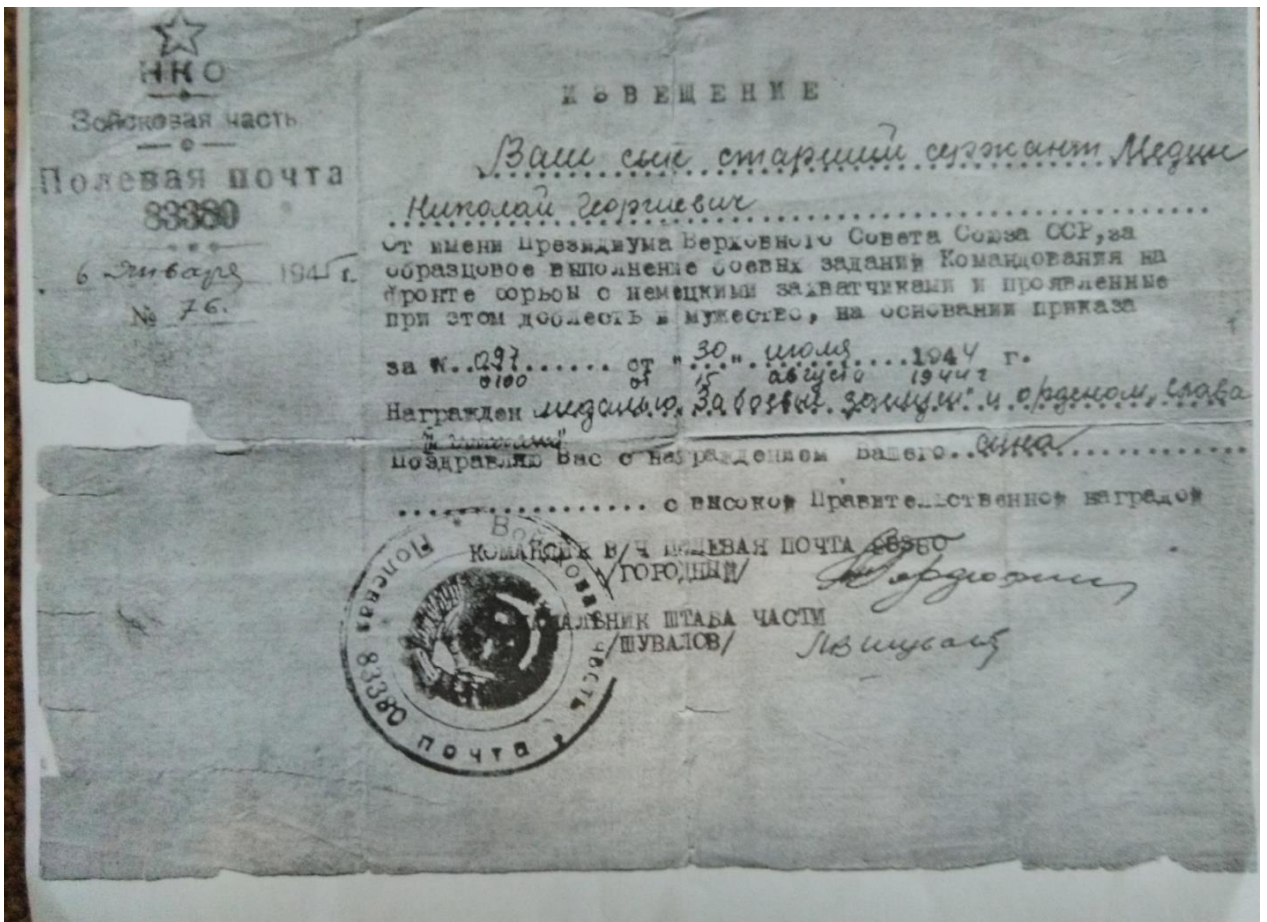 НКО
Войсковая часть
Полевая почта
83380
6 января 1945 г.
№ 76.
ИЗВЕЩЕНИЕ
Ваш сын старший сержант Медин
Николай Георгиевич
От имени Президиума Верховного Совета Союза ССР, за
образцовое выполнение боевых заданий Командования на
фронте борьбы с немецкими захватчиками и проявленные
при этом доблесть и мужество, на основании приказа
за №..097....... от "30" июля ....1944 г.
0100 от 15 августа 1944 г
Награжден медалью "За боевые заслуги" и орденом "Слава
Поздравляю Вас с награждением Вашего..сына
с высокой Правительственной наградой
КОМАНДИР В/Ч ПОЛЕВАЯ ПОЧТА
/ГОРОДНЫЙ/
НАЧАЛЬНИК ШТАБА ЧАСТИ
/ШУВАЛОВ/
Войсковая часть * Полевая 83380 почта *